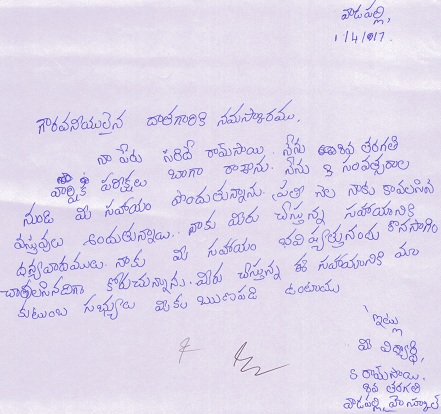 వాడపల్లి,
1/4/017.
గౌరవనీయులైన దాతగారికి నమస్కారము.
నా పేరు సరిదే రామ్‌సాయి. నేను 8వ తరగతి
వార్షిక పరీక్షలు బాగా రాశాను. నేను 3 సంవత్సరాల
నుండి మీ సహాయం పొందుతున్నాను. ప్రతీ నెల నాకు కావలసిన
వస్తువులు అందుతున్నాయి. నాకు మీరు చేస్తున్న సహాయానికి
ధన్యవాదములు. నాకు మీ సహాయం భవిష్యత్తునందు కొనసాగిం
చాల్సినదిగా కోరుచున్నాను. మీరు చేస్తున్న ఈ సహాయానికి మా
కుటుంబ సభ్యులు మీకు ఋణపడి ఉంటాము
ఇట్లు
మీ విద్యార్థి,
S రామ్‌సాయి.
8వ తరగతి
వాడపల్లి హై స్కూల్